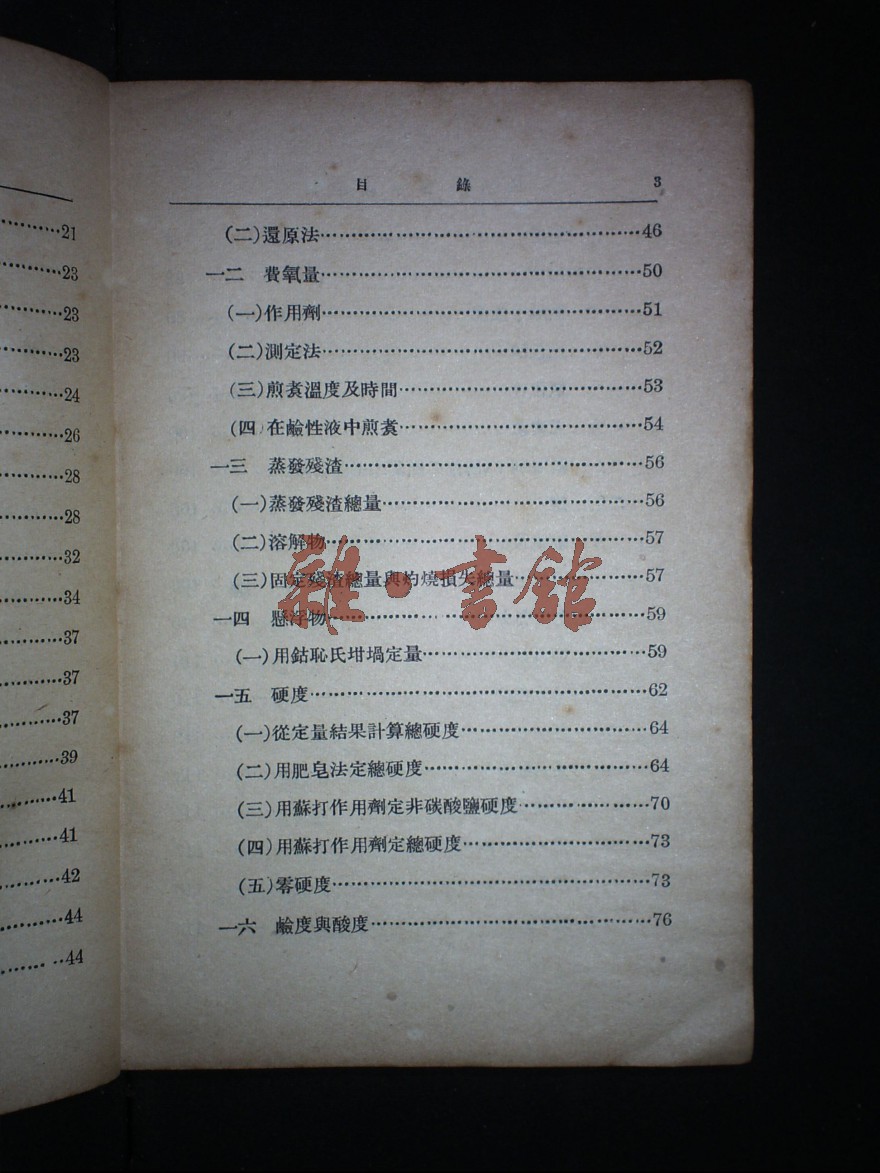 21
23
23
23
24
26
28
28
32
34
37
37
37
39
41
41
42
44
44
目 錄 3
(二)還原法 46
一二 費氧量 50
(一)作用劑 51
(二)測定法 52
(三)煎煑溫度及時間 53
(四)在鹼性液中煎煑 54
一三 蒸發殘渣 56
(一)蒸發殘渣總量 56
(二)溶解物 57
(三)固定殘渣總量與灼燒損失總量 57
一四 懸浮物 59
(一)用鈷恥氏坩堝定量 59
一五 硬度 62
(一)從定量結果計算總硬度 64
(二)用肥皂法定總硬度 64
(三)用蘇打作用劑定非碳酸鹽硬度 70
(四)用蘇打作用劑定總硬度 73
(五)零硬度 73
一六 鹼度與酸度 76
雜·書館